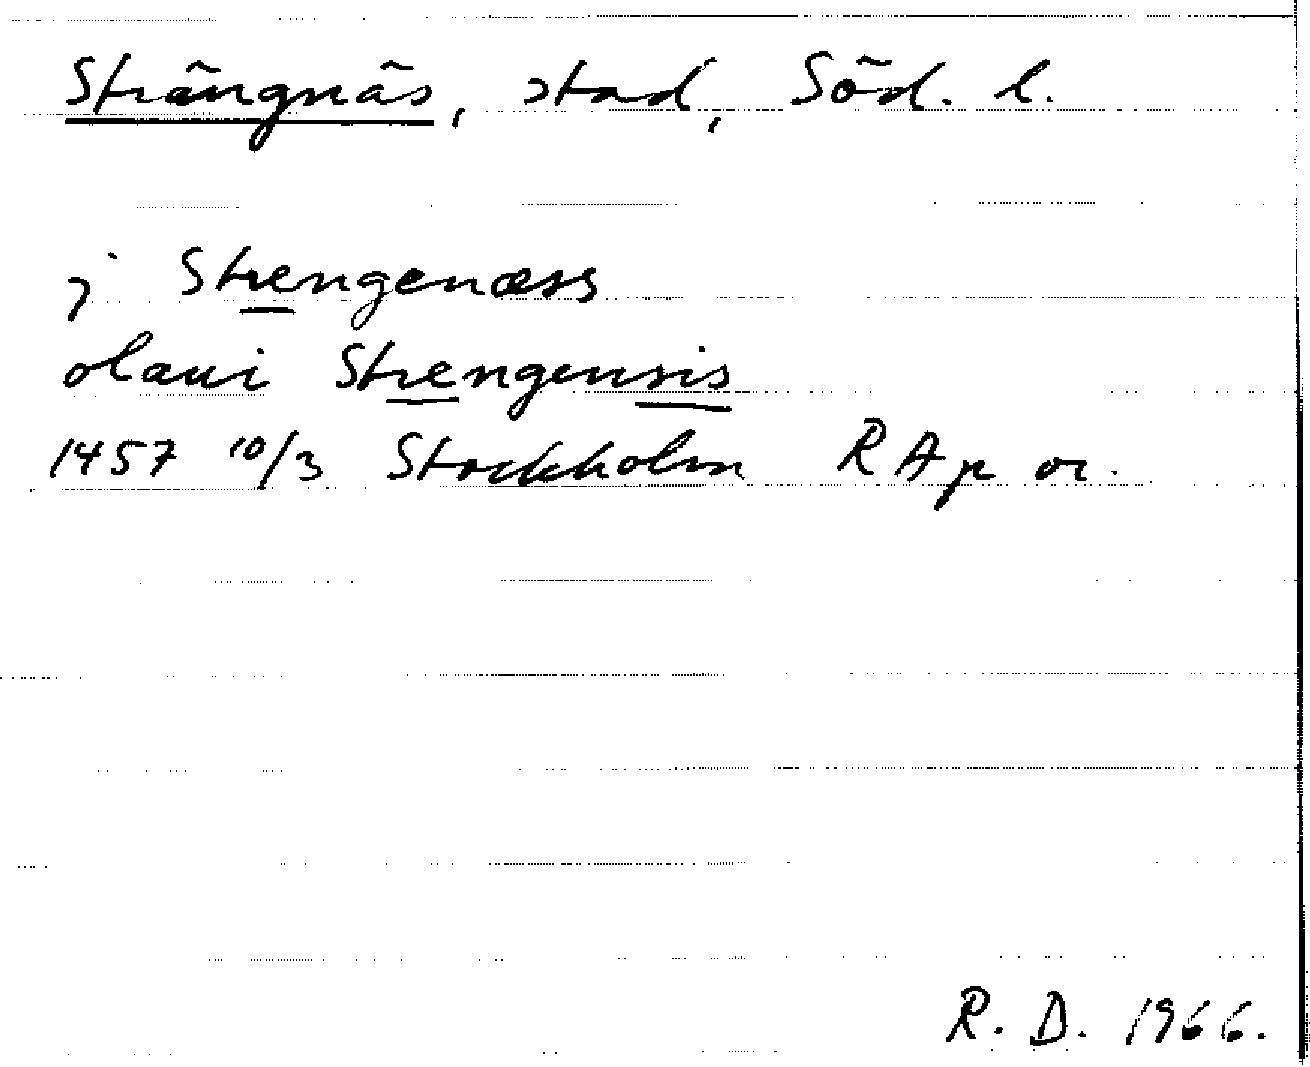 Strängnäs, stad, Söd. l.
j Strengenæss
olaui Strengensis
1457 10/3 Stockholm RAp or.
R. D. 1966.